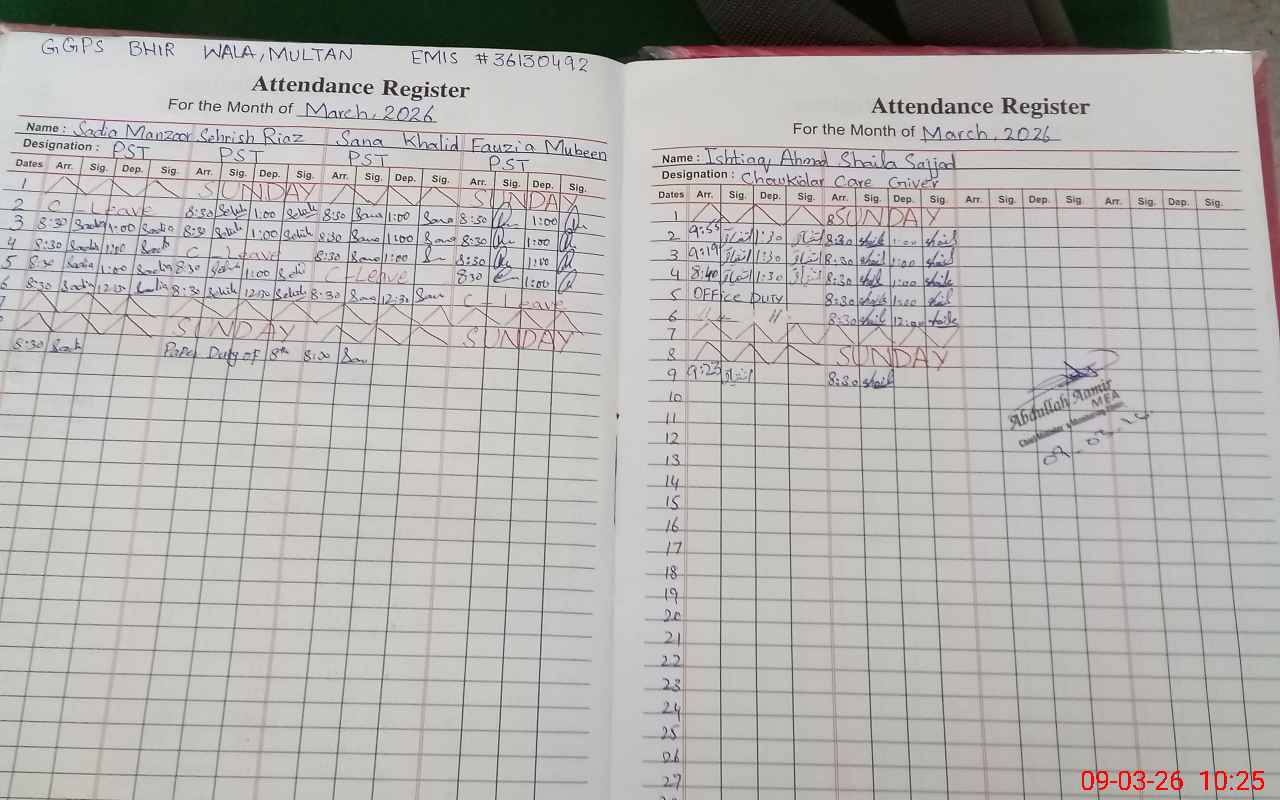 GGPS BHIR WALA, MULTAN EMIS #36130492
Attendance Register
For the Month of March, 2026
Name : Sadia Manzoor Sehrish Riaz Sana Khalid Fauzia Mubeen
Designation : PST PST PST PST
Dates Arr. Sig. Dep. Sig. Arr. Sig. Dep. Sig. Arr. Sig. Dep. Sig. Arr. Sig. Dep. Sig.
1 SUNDAY SUNDAY
2 C - Leave 8:30 1:00 8:30 Sana 1:00 Sana 8:30 1:00
3 8:30 Sadia 1:00 Sadia 8:30 1:00 8:30 Sana 1:00 Sana 8:30 1:00
4 8:30 Sadia 1:00 C Leave 8:30 Sana 1:00 8:30 1:00
5 8:30 Sadia 1:00 Sadia 8:30 1:00 C-Leave 8:30 1:00
6 8:30 Sadia 12:30 Sadia 8:30 12:30 8:30 Sana 12:30 Sana C - Leave
7
SUNDAY SUNDAY
8:30 Paper Duty of 8th 8:00 Sana
Attendance Register
For the Month of March, 2026
Name : Ishtiaq Ahmad Shaila Sajjad
Designation : Chowkidar Care Giver
Dates Arr. Sig. Dep. Sig. Arr. Sig. Dep. Sig. Arr. Sig. Dep. Sig. Arr. Sig. Dep. Sig.
1 SUNDAY
2 9:55 1:30 8:30 1:00
3 9:19 1:30 8:30 1:00
4 8:40 1:30 8:30 1:00
5 OFFice DUTY 8:30 1:00
6 〃 〃 8:30 12:00
7
8 SUNDAY
9 9:23 8:30
10
11
12
13
14
15
16
17
18
19
20
21
22
23
24
25
26
27
Abdullah Aamir
MEA
09-03-26 10:25